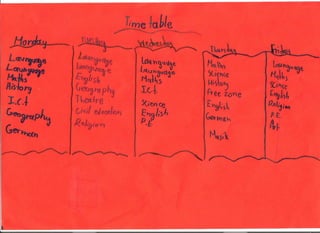 Time table
Monday
Language
Language
Maths
History
I.C.t
Geography
German
Tuesday
Language
Language
English
Geography
Theatre
Civil education
Religion
Wednesday
Language
Language
Maths
I.C.t
Science
English
P.E
Maths
Science
History
Free zone
English
German
Music
Friday
Language
Maths
Science
English
Religion
P.E.
Art